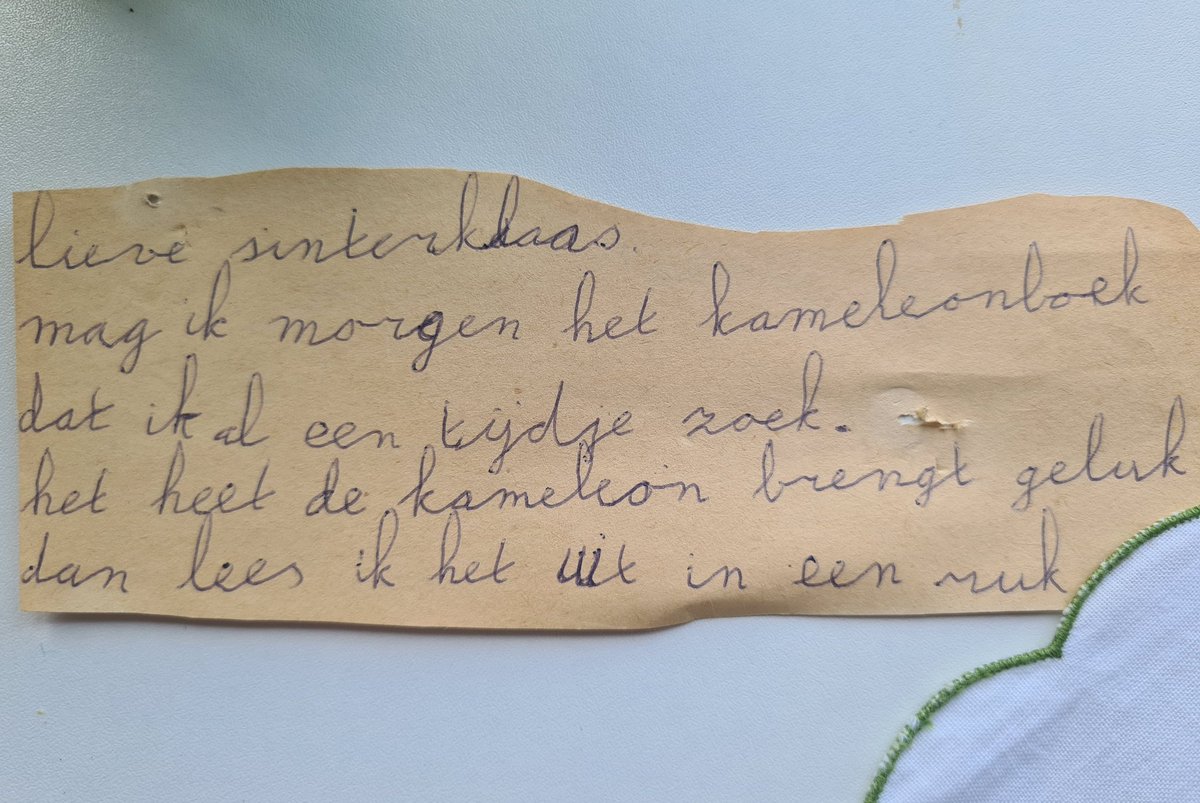 lieve sinterklaas.
mag ik morgen het kameleonboek
dat ik al een tijdje zoek.
het heet de kameleon brengt geluk
dan lees ik het uit in een ruk